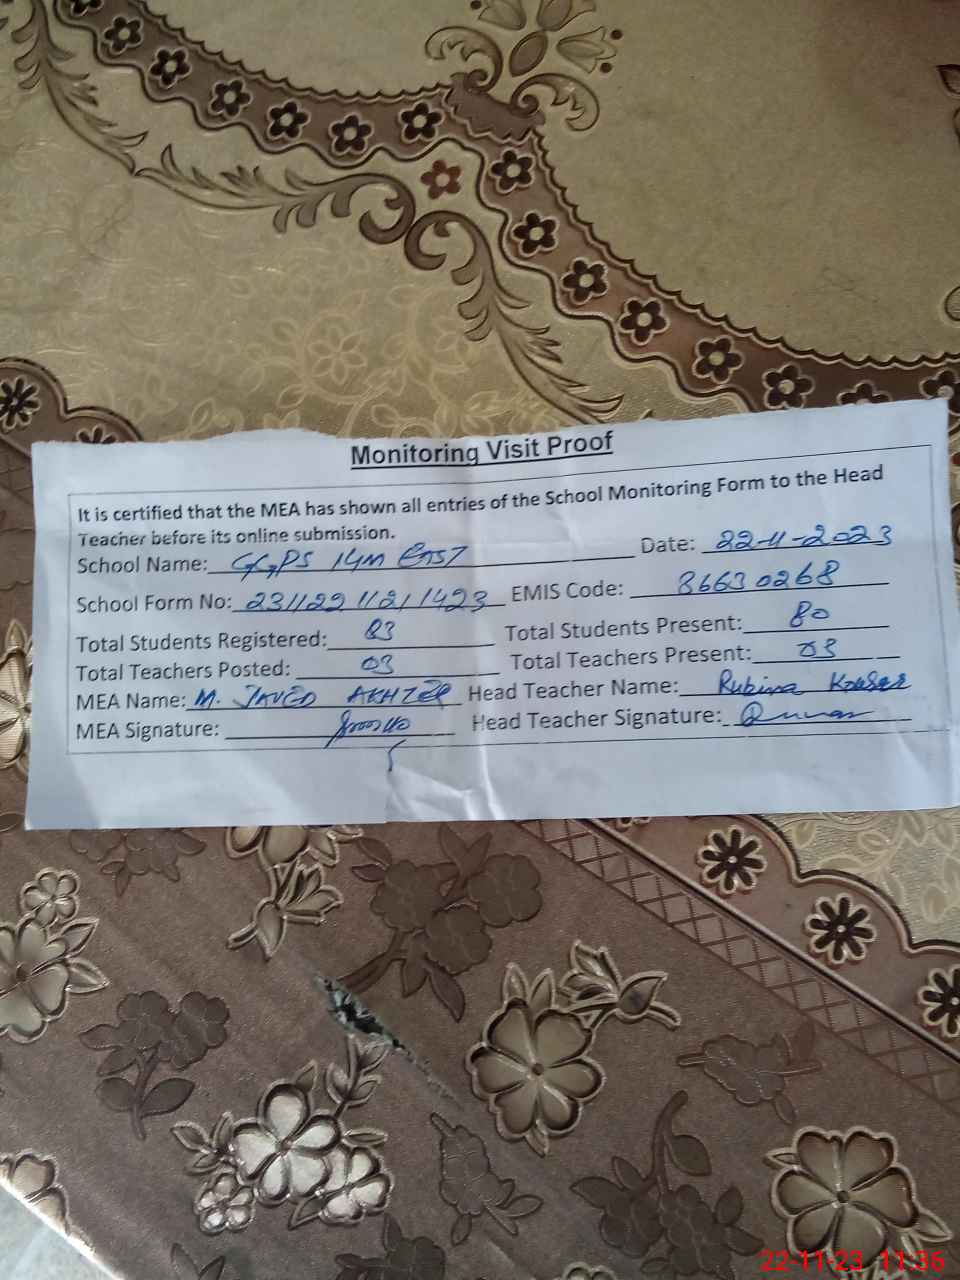 Monitoring Visit Proof
It is certified that the MEA has shown all entries of the School Monitoring Form to the Head
Teacher before its online submission.
School Name: GGPS 14M EAST Date: 22-11-2023
School Form No: 23112211211423 EMIS Code: 36630268
Total Students Registered: 83 Total Students Present: 80
Total Teachers Posted: 03 Total Teachers Present: 03
MEA Name: M. JAVED AKHTER Head Teacher Name: Rubina Kousar
MEA Signature: Head Teacher Signature:
22-11-23 11:36